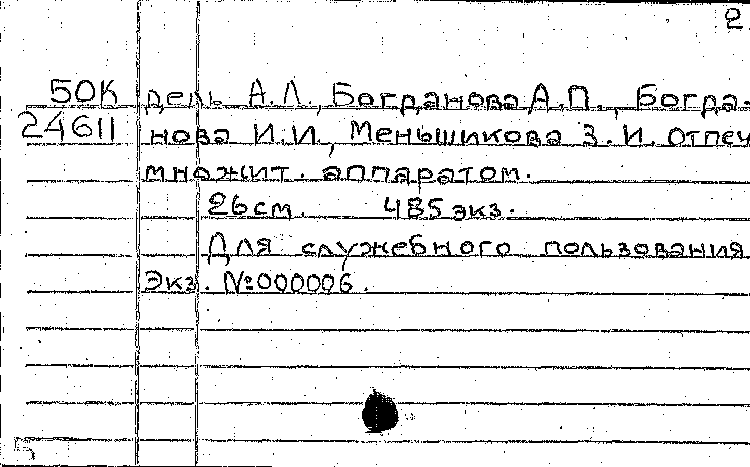 2
50К дель А.Л., Богданова А.П., Богда-
24611 нова И.И., Меньшикова З.И. Отпеч
множит. аппаратом.
26см. 485 экз.
Для служебного пользования
Экз. №000006.